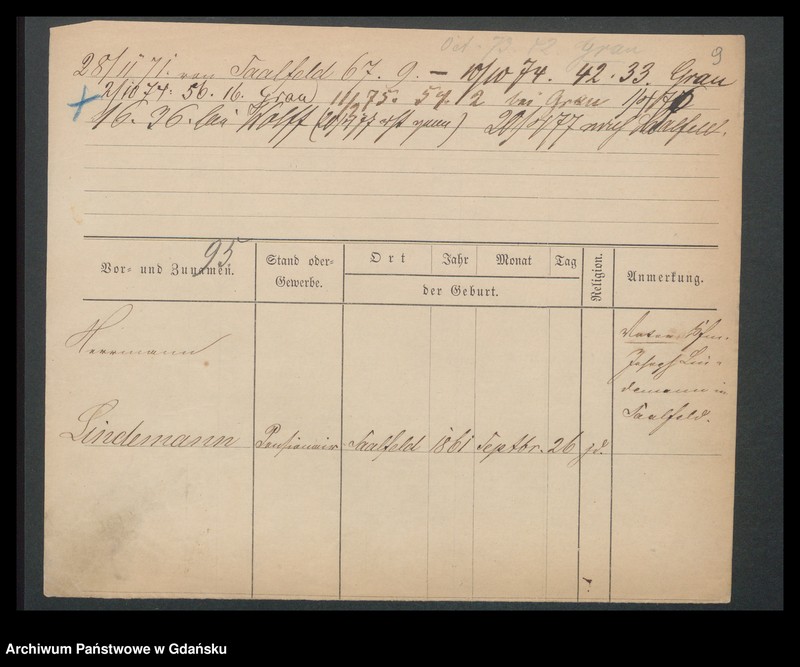 Oct. 73. 52 Grau
9
28/11 71. von Saalfeld 67. 9. – 10/10 74. 42. 33. Grau
2/10 74. 56. 16. Grau) 11/ 75. 59. 2 bei Grau 1/4/76
16. 36. bei Wolff ( ) 20/4/77 nach Saalfeld.
95
Vor- und Zunamen.
Stand oder Gewerbe.
Ort
Jahr
Monat
Tag
der Geburt.
Religion.
Anmerkung.
Herrmann
Lindemann
Pensionair
Saalfeld
1861
Septbr.
26
jd.
Vater: Kfm.
Joseph Lin-
demann in
Saalfeld.
Archiwum Państwowe w Gdańsku